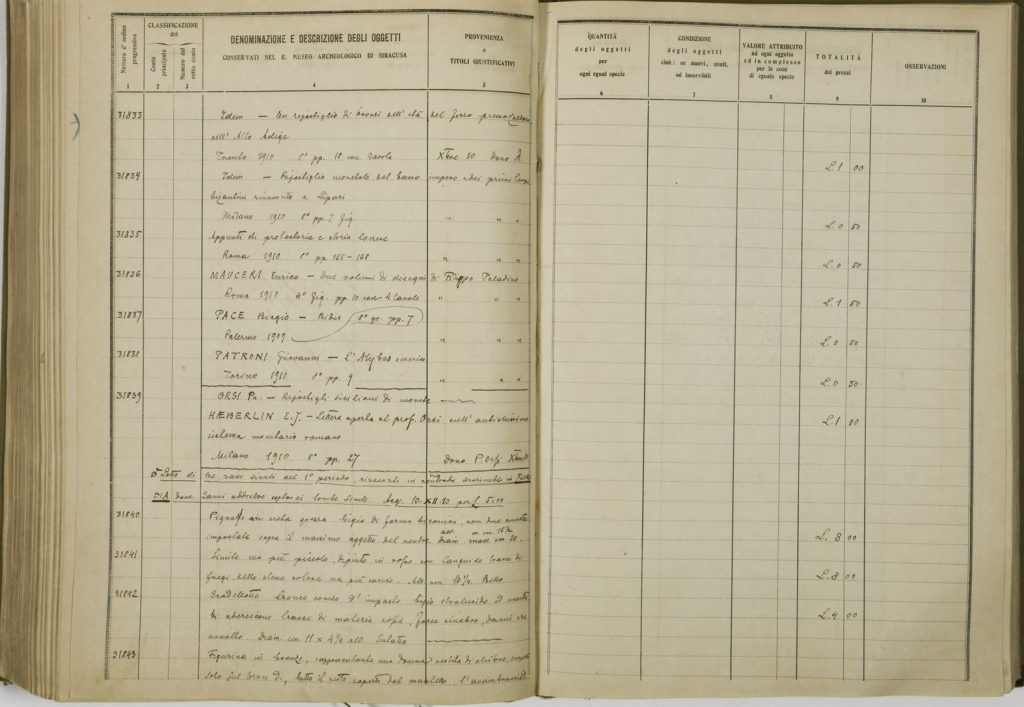 Numero d'ordine progressivo
CLASSIFICAZIONE
del
Conto principale
Numero del sotto conto
DENOMINAZIONE E DESCRIZIONE DEGLI OGGETTI
CONSERVATI NEL R. MUSEO ARCHEOLOGICO DI SIRACUSA
PROVENIENZA
e
TITOLI GIUSTIFICATIVI
QUANTITÀ
degli oggetti
per
ogni egual specie
CONDIZIONE
degli oggetti
cioè: se nuovi, usati,
od inservibili
VALORE ATTRIBUITO
ad ogni oggetto
ed in complesso
per le cose
di eguale specie
TOTALITÀ
dei prezzi
OSSERVAZIONI
1 2 3 4 5 6 7 8 9 10
31833 Idem — Un ripostiglio di bronzi dell' età del ferro
nell' Alto Adige
Trento 1910 8° pp. 18 con tavola Xbre 10 Dono A. L. 1 00
31834 Idem — Ripostiglio monetale del basso impero e dei primi
bizantini rinvenuto a Lipari
Milano 1910 8° pp. 7 fig. " " " L. 0 50
31835 Appunti di protostoria e storia locrese
Roma 1910 8° pp. 155-168 " " " L. 0 50
31836 MAUCERI Enrico — Due volumi di disegni di Filippo Paladino
Roma 1910 4° fig. pp. 10 con 4 tavole " " " L. 1 50
31837 PACE Biagio — Bidis 8° gr. pp. 7
Palermo 1909 " " " L. 0 50
31838 PATRONI Giovanni — L' Alybas omerica
Torino 1910 8° pp. 9 " " " L. 0 50
31839 ORSI Pa. — Ripostigli siciliani di monete
HÆBERLIN E. J. — Lettera aperta al prof. Orsi sull' antichissimo
sistema monetario romano L. 1 00
Milano 1910 8° pp. 27 Dono P. Orsi
Lotto di tre vasi siculi del periodo, rinvenuti in contrada in
DIA dove addietro esplorai tombe sicule. Acq. 10. XII. 10 per L
31840 in creta grezza bigia di forma biconica, con due
impostate sopra il massimo aggetto del ventre. Diam. mass. cm 20. L. 8 00
31841 Simile ma più piccolo, dipinto in rosso con languide tracce di
fregi dello stesso colore ma più carico. Alt. cm. 10½. Bello L. 8 00
31842 tronco conico d' impasto bigio
vi aderiscono tracce di materia rossa, forse cinabro,
Diam. cm. 11 x 4½ alt. L. 4 00
31843 Figurina in bronzo, rappresentante una donna vestita di chitone,
tutto il resto coperto dal mantello; l'avambraccio